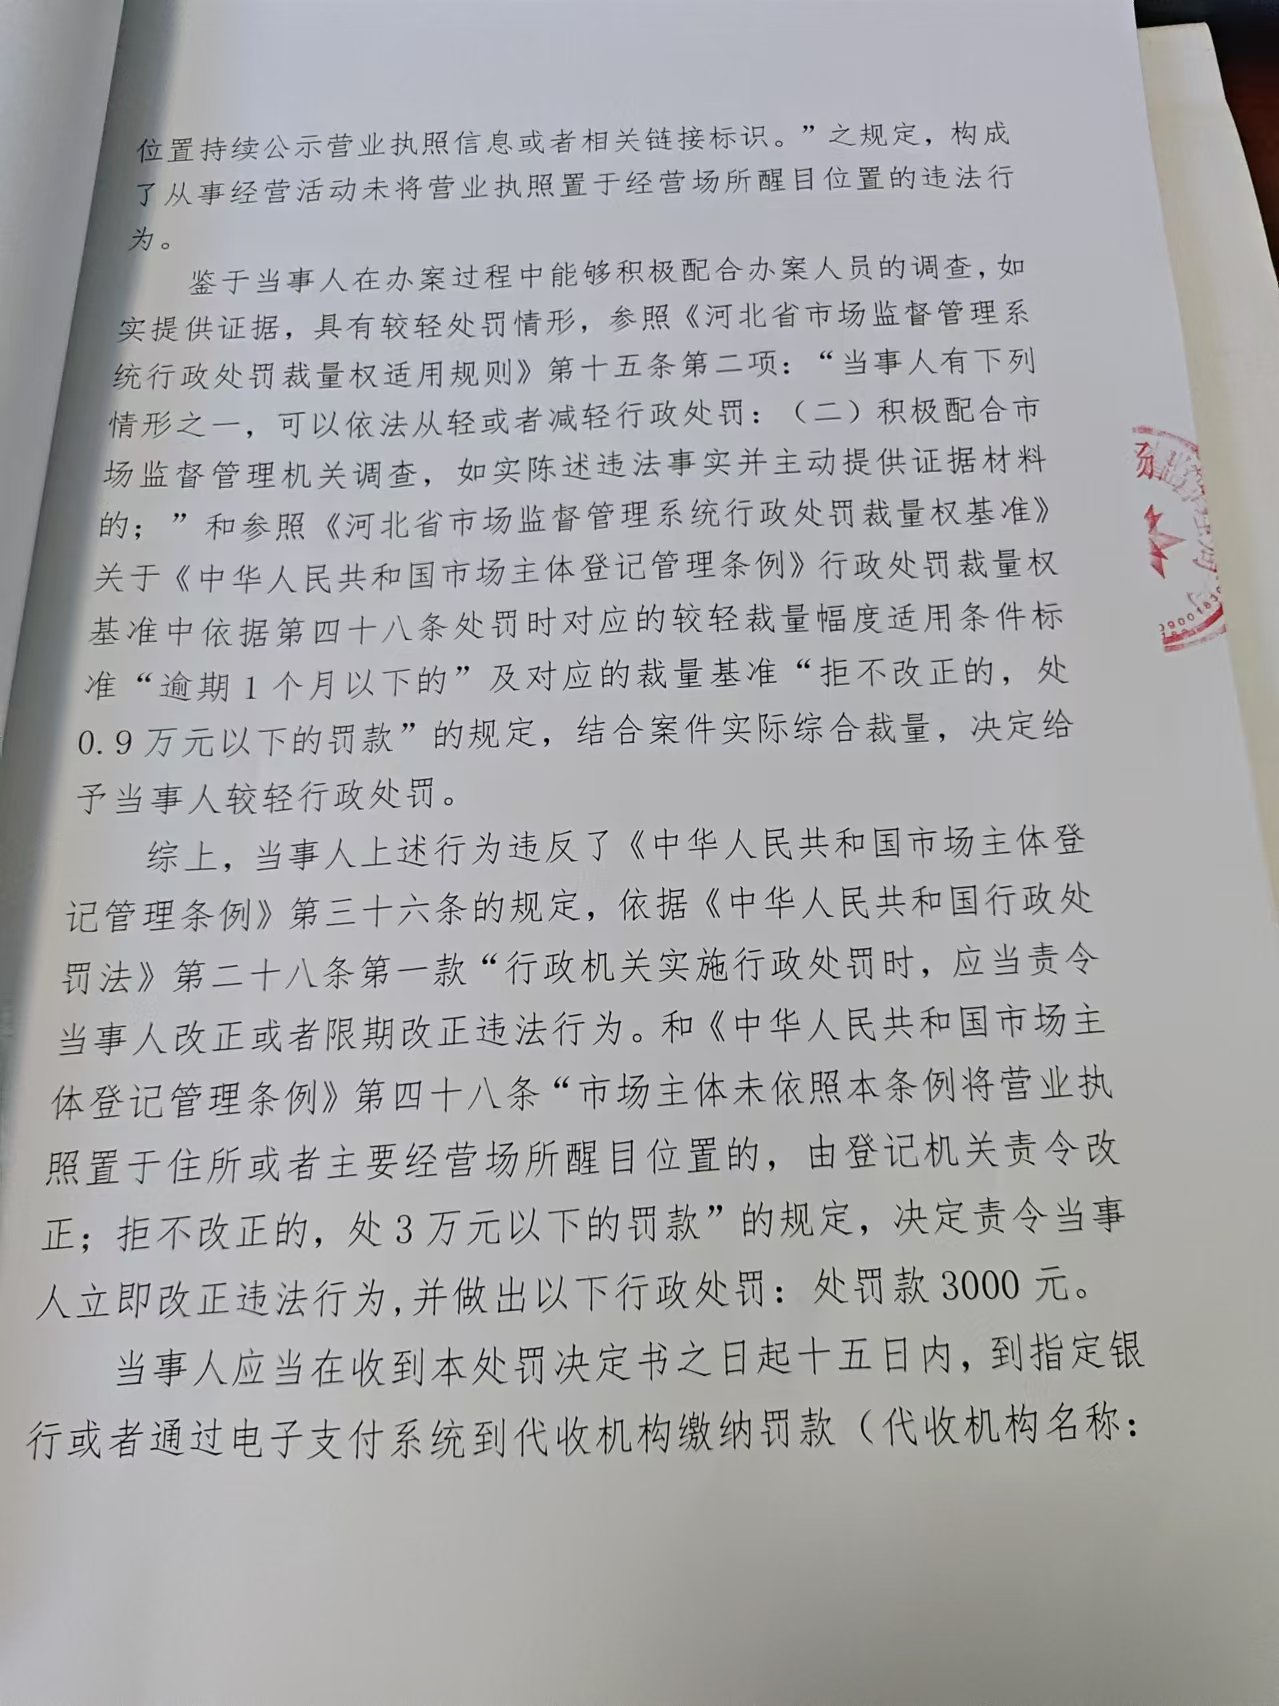 位置持续公示营业执照信息或者相关链接标识。”之规定，构成
了从事经营活动未将营业执照置于经营场所醒目位置的违法行
为。
鉴于当事人在办案过程中能够积极配合办案人员的调查，如
实提供证据，具有较轻处罚情形，参照《河北省市场监督管理系
统行政处罚裁量权适用规则》第十五条第二项：“当事人有下列
情形之一，可以依法从轻或者减轻行政处罚：（二）积极配合市
场监督管理机关调查，如实陈述违法事实并主动提供证据材料
的；”和参照《河北省市场监督管理系统行政处罚裁量权基准》
关于《中华人民共和国市场主体登记管理条例》行政处罚裁量权
基准中依据第四十八条处罚时对应的较轻裁量幅度适用条件标
准“逾期1个月以下的”及对应的裁量基准“拒不改正的，处
0.9万元以下的罚款”的规定，结合案件实际综合裁量，决定给
予当事人较轻行政处罚。
综上，当事人上述行为违反了《中华人民共和国市场主体登
记管理条例》第三十六条的规定，依据《中华人民共和国行政处
罚法》第二十八条第一款“行政机关实施行政处罚时，应当责令
当事人改正或者限期改正违法行为。和《中华人民共和国市场主
体登记管理条例》第四十八条“市场主体未依照本条例将营业执
照置于住所或者主要经营场所醒目位置的，由登记机关责令改
正；拒不改正的，处3万元以下的罚款”的规定，决定责令当事
人立即改正违法行为,并做出以下行政处罚：处罚款3000元。
当事人应当在收到本处罚决定书之日起十五日内，到指定银
行或者通过电子支付系统到代收机构缴纳罚款（代收机构名称：